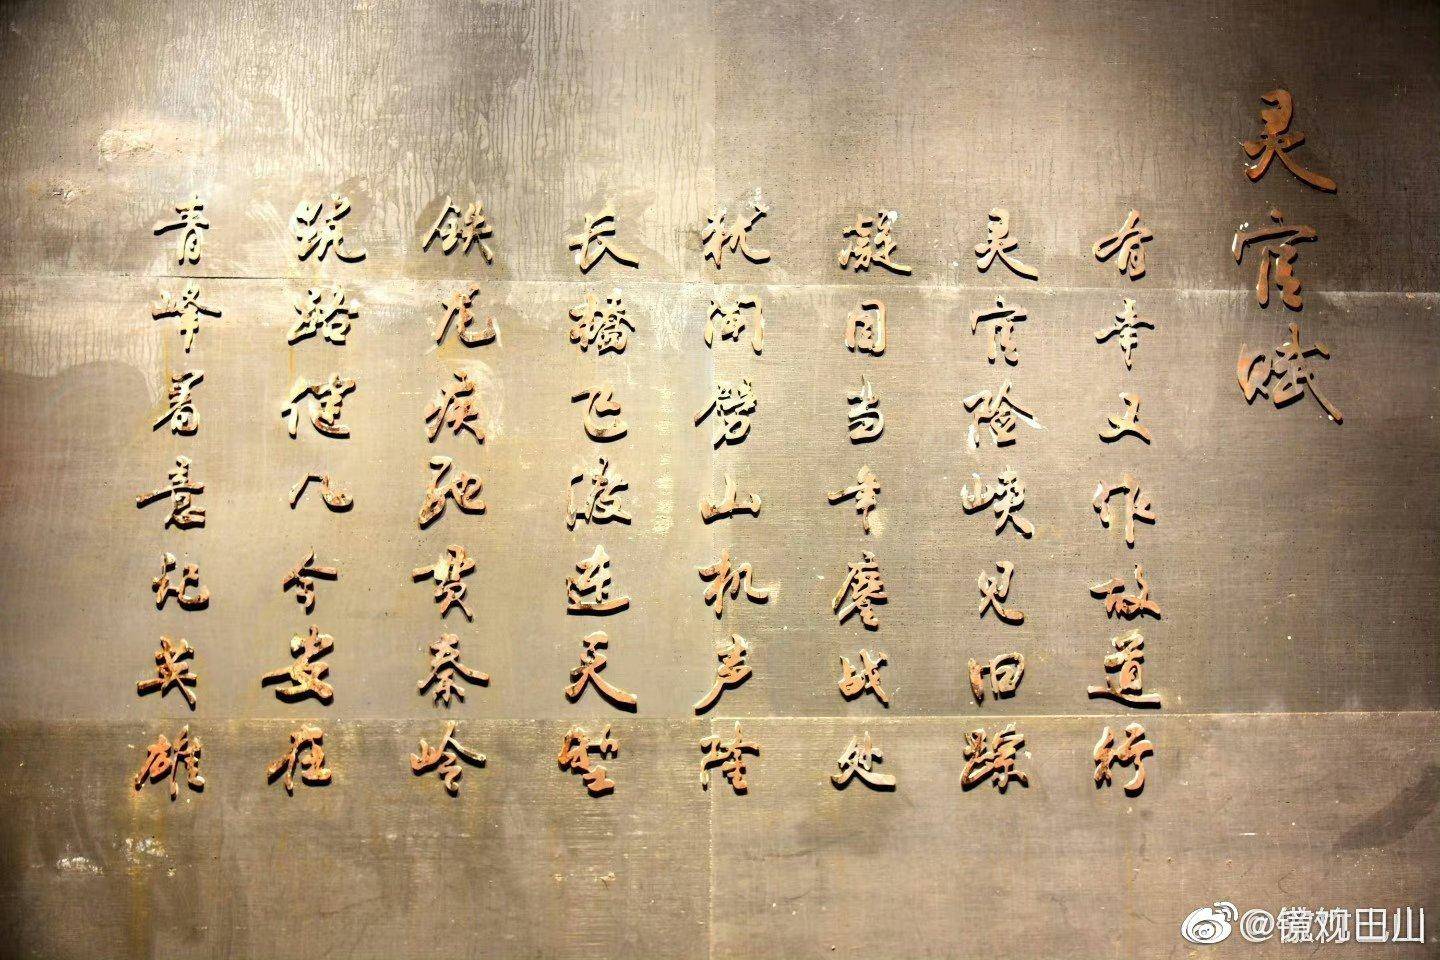 灵官赋
有幸又作故道行
灵官险峡见旧踪
凝目当年鏖战处
犹闻劈山机声隆
长桥飞渡连天堑
铁龙疾驰贯秦岭
筑路健儿今安在
青峰着意记英雄
@镜观田山